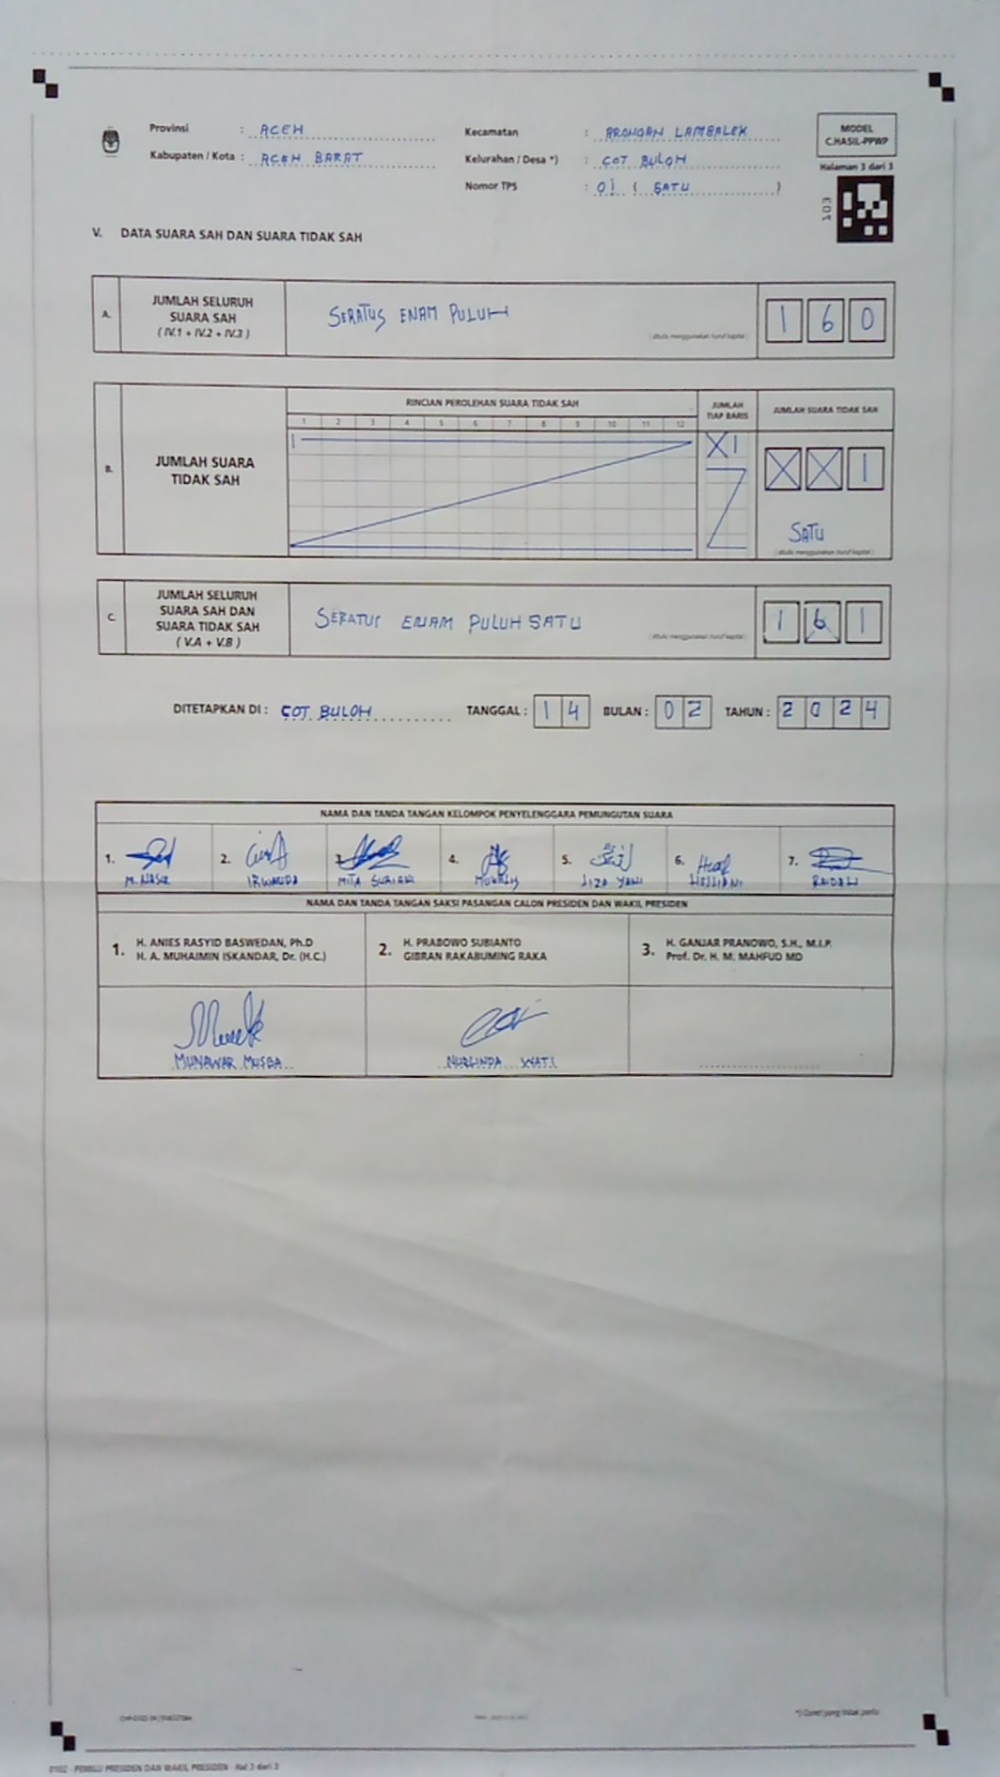 Provinsi : ACEH
Kabupaten / Kota : ACEH BARAT
Kecamatan : ARONGAN LAMBALEK
Kelurahan / Desa *) : COT BULOH
Nomor TPS : 01 ( SATU )
MODEL
C.HASIL-PPWP
Halaman 3 dari 3
103
V. DATA SUARA SAH DAN SUARA TIDAK SAH
A. JUMLAH SELURUH
SUARA SAH
( IV.1 + IV.2 + IV.3 )
SERATUS ENAM PULUH
( ditulis menggunakan huruf kapital )
1 6 0
B. JUMLAH SUARA
TIDAK SAH
RINCIAN PEROLEHAN SUARA TIDAK SAH
1 2 3 4 5 6 7 8 9 10 11 12
JUMLAH
TIAP BARIS
JUMLAH SUARA TIDAK SAH
I
X 1
X X 1
SATU
( ditulis menggunakan huruf kapital )
C. JUMLAH SELURUH
SUARA SAH DAN
SUARA TIDAK SAH
( V.A + V.B )
SERATUS ENAM PULUH SATU
( ditulis menggunakan huruf kapital )
1 6 1
DITETAPKAN DI : COT BULOH TANGGAL : 1 4 BULAN : 0 2 TAHUN : 2 0 2 4
NAMA DAN TANDA TANGAN KELOMPOK PENYELENGGARA PEMUNGUTAN SUARA
1. 2. 3. 4. 5. 6. 7.
M. NASIR IRWANDA MITA SURIANI MUKHLIS LIZA YANI
NAMA DAN TANDA TANGAN SAKSI PASANGAN CALON PRESIDEN DAN WAKIL PRESIDEN
1. H. ANIES RASYID BASWEDAN, Ph.D
H. A. MUHAIMIN ISKANDAR, Dr. (H.C.)
2. H. PRABOWO SUBIANTO
GIBRAN RAKABUMING RAKA
3. H. GANJAR PRANOWO, S.H., M.I.P.
Prof. Dr. H. M. MAHFUD MD
MUNAWAR MUSBA
NURLINDA WATI
*) Coret yang tidak perlu
0102 - PEMILU PRESIDEN DAN WAKIL PRESIDEN - Hal 3 dari 3